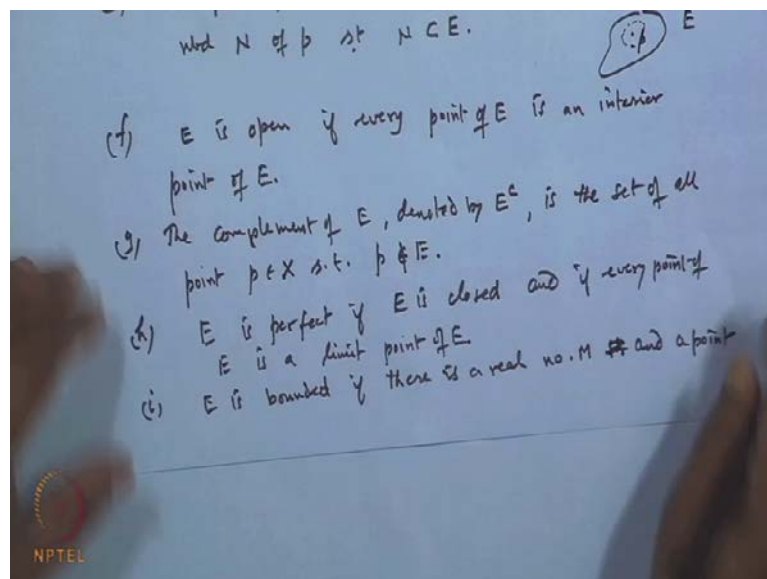 nbd N of p s.t N ⊂ E.
p
E
(f) E is open if every point of E is an interior
point of E.
(g) The complement of E, denoted by E^c, is the set of all
point p ∈ X s.t. p ∉ E.
(h) E is perfect if E is closed and if every point of
E is a limit point of E
(i) E is bounded if there is a real no. M and a point
NPTEL